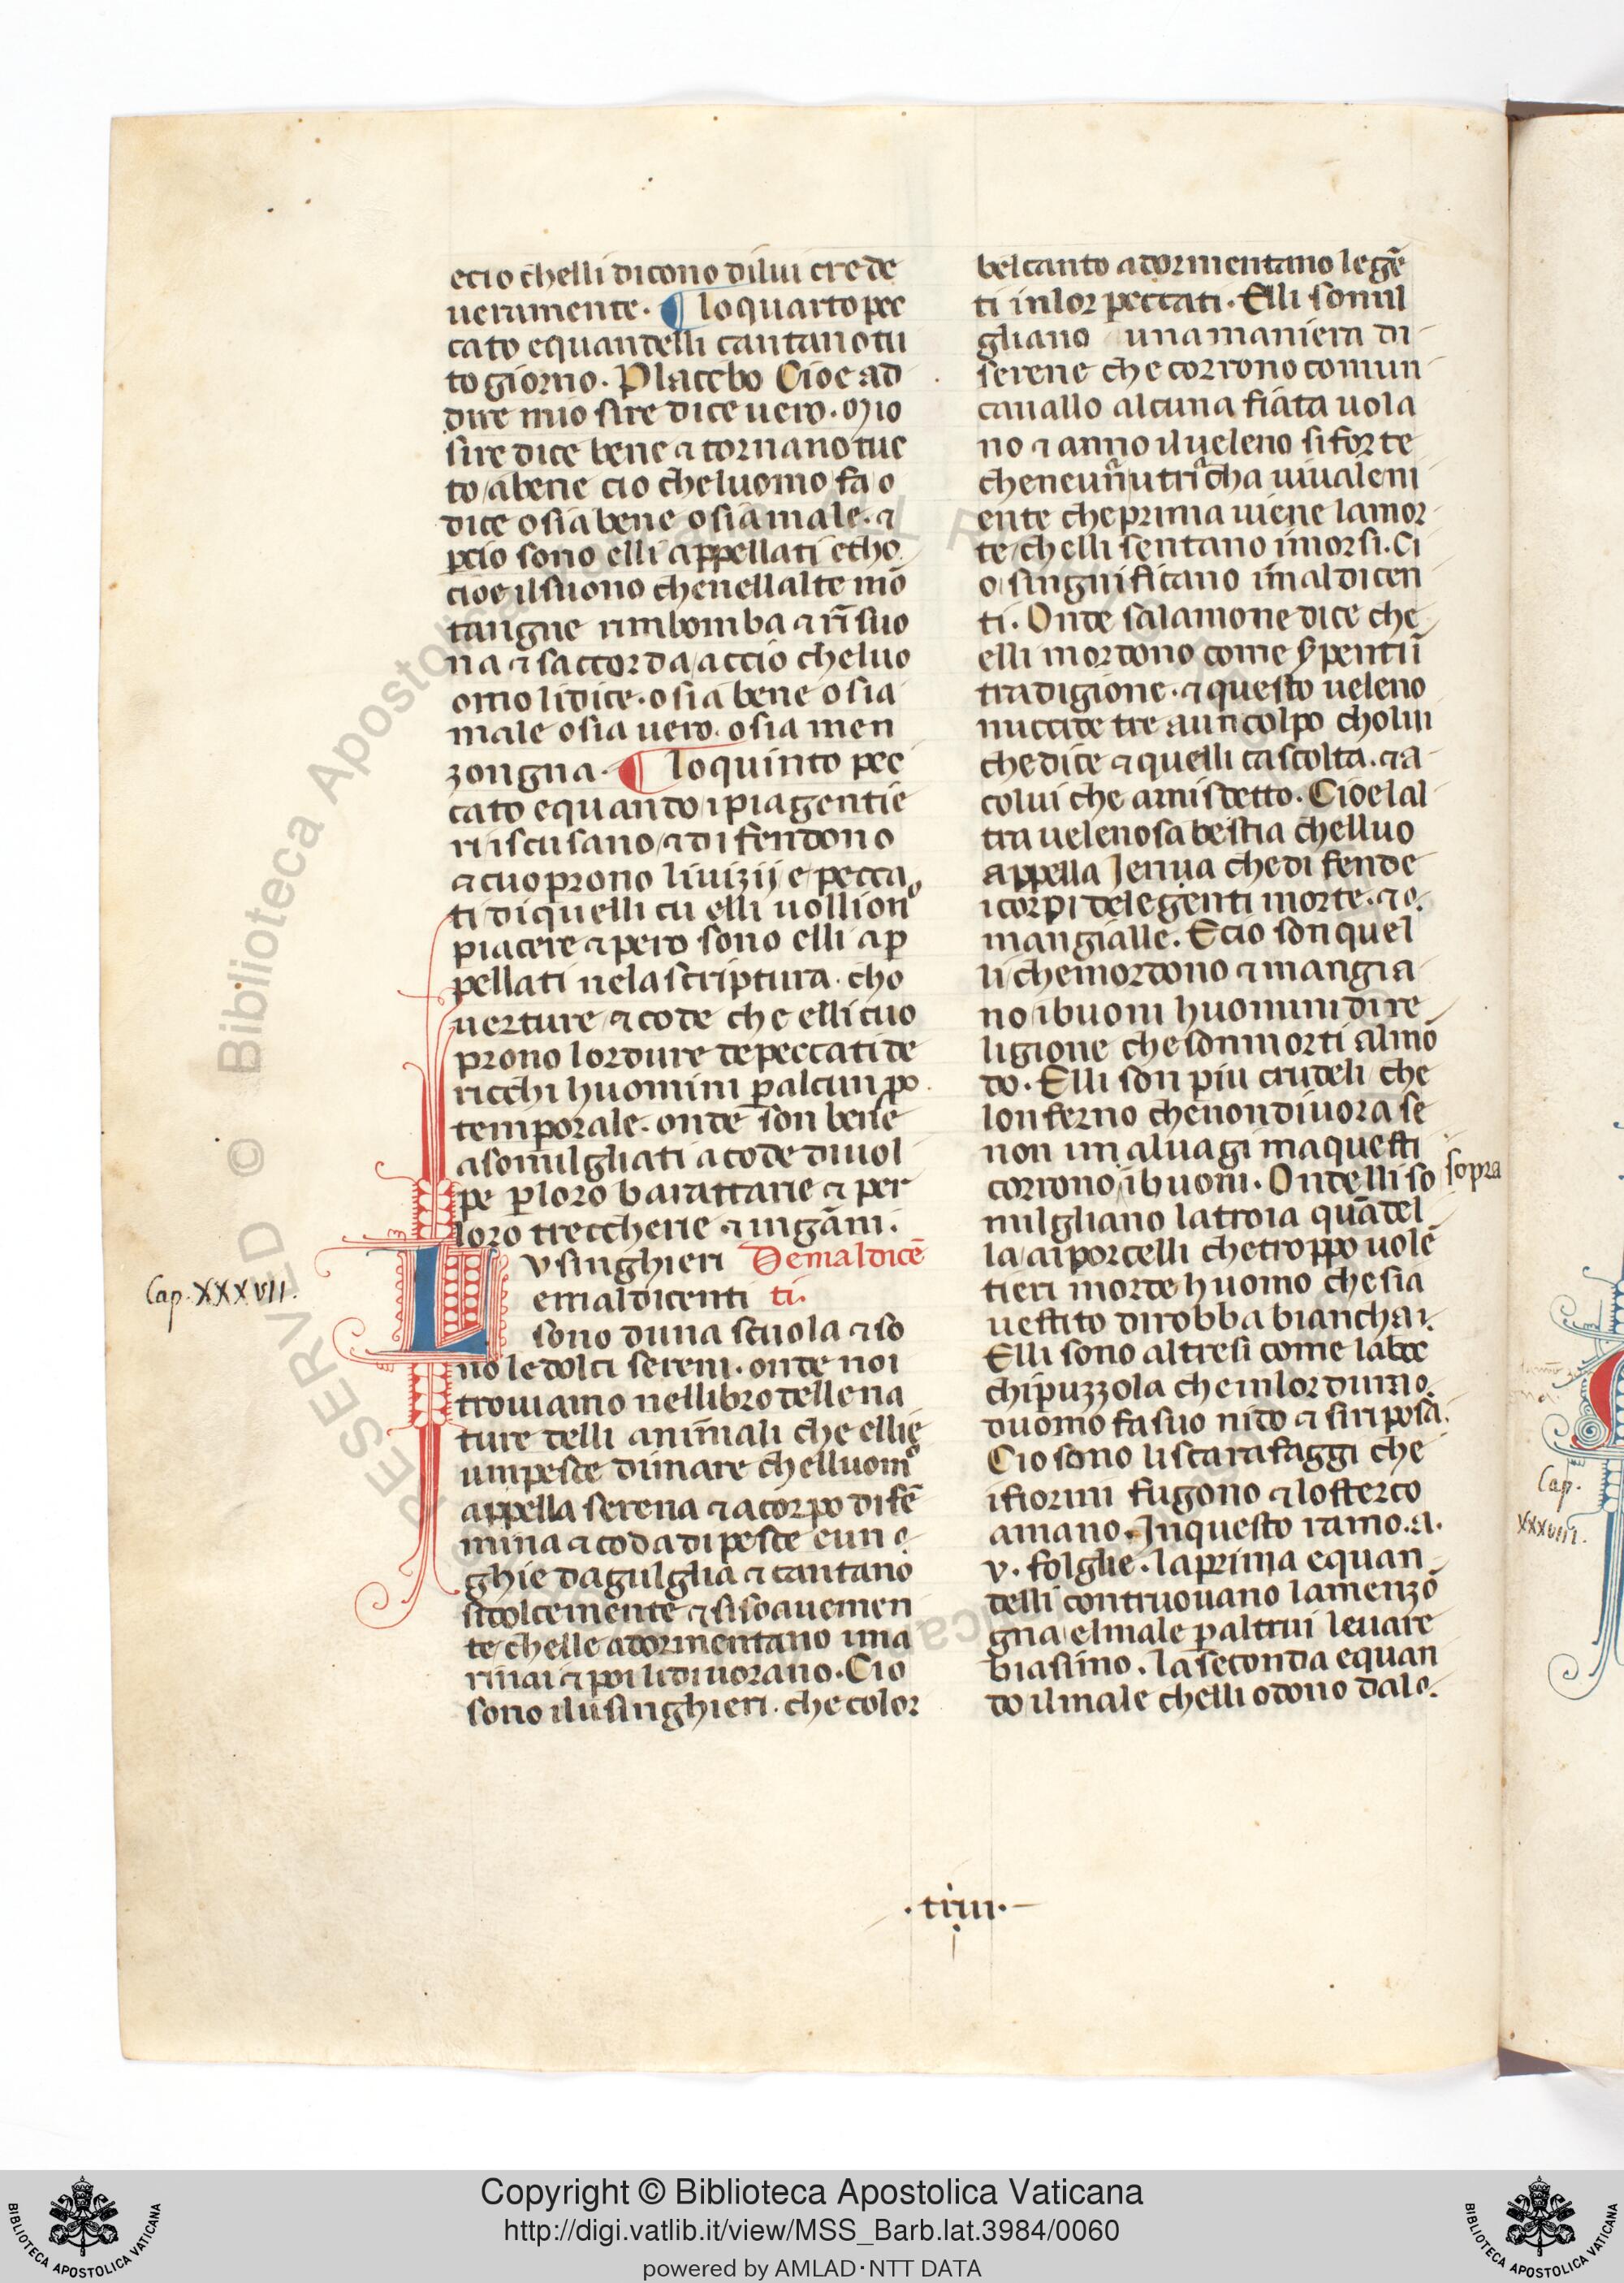 ecio chelli dicono dilui crede
ueramente. ¶ lo quarto pec
cato equandelli cantano tu
to giorno. Placebo Cioe ad
dire mio sire dice uero. Mio
sire dice bene ⁊ tornano tuc
to abene cio cheluomo fa o
dice osia bene osia male. ⁊
ꝑcio sono elli appellati echo
cioe ilsuono chenellalte mō
tangne rimbomba ⁊ rīsuo
na ⁊ saccorda accio cheluo
omo lidice. osia bene osia
male osia uero. osia men
zongna. ¶ lo quinto pec
cato equando ipiagentie
ri iscusano ⁊ difendono
⁊ cuoprono liuizij e pecca
ti diquelli cu elli uollionº
piacere ⁊ pero sono elli ap
pellati nela scriptura. cho
uerture ⁊ code che elli cuo
prono lordure de peccati de
ricchi huomini ꝑ alcun ꝓ
temporale. onde son bene
asomilgliati acode diuol
pe ꝑ loro barattarie ⁊ per
loro treccherie ⁊ ingāni.
Lusinghieri De maldicē
emaldicenti ti.
sono duna scuola ⁊ so
no ledolci sereni. onde noi
trouiamo nellibro dellena
ture delli animali che ellie
un pesce dimare chelluomº
appella serena ⁊ a corpo di fē
mina ⁊ coda di pesce e un
ghie dagulglia ⁊ cantano
sidolcemente ⁊ sisoauemen
te chelle adormentano ima
rinai ⁊ poi lidiuorano. Cio
sono ilusinghieri. che color
belcanto adormentano le gē
ti inlor peccati. Elli somil
gliano una maniera di
serene che corrono comun
cauallo alcuna fiata uola
no ⁊ anno il ueleno si forte
ente che prima uiene lamor
te chelli sentano imorsi. Ci
o singnificano imaldicen
ti. Onde salamone dice che
elli mordono come
tradigione. ⁊ questo ueleno
nuccide tre aun colpo cholui
che dice ⁊ quelli cascolta. ⁊ a
colui che amisdetto. Cioe lal
tra uelenosa bestia chelluo
appella Jenua che di fende
icorpi dele genti morte. ⁊
mangialle. E cio son quel
li che mordono ⁊ mangia
no ibuoni huomini di re
ligione che son morti al mō
do. Elli son piu crudeli che
lonferno che non diuora se
non imaluagi ma questi
corrono ibuoni. Ondelli so
sopra
milgliano latroia quādel
la ai porcelli che troppo uole
tieri morde huomo che sia
uestito di robba biancha
Elli sono altresi come labec
chipuzzola che in lordura
duomo fa suo nido ⁊ si riposa.
Cio sono li scarafaggi che
ifiorini fugono ⁊ lo sterco
amano. Inquesto ramo. a.
v. folglie. la prima equan
delli controuano lamenzo
gna el male ꝑ altrui leuare
biasimo. la seconda equan
do ilmale chelli odono dalo.
Cap. XXXVII.
Cap.
XXXVIII.
Copyright © Biblioteca Apostolica Vaticana
http://digi.vatlib.it/view/MSS_Barb.lat.3984/0060
powered by AMLAD·NTT DATA
BIBLIOTECA APOSTOLICA VATICANA
BIBLIOTECA APOSTOLICA VATICANA